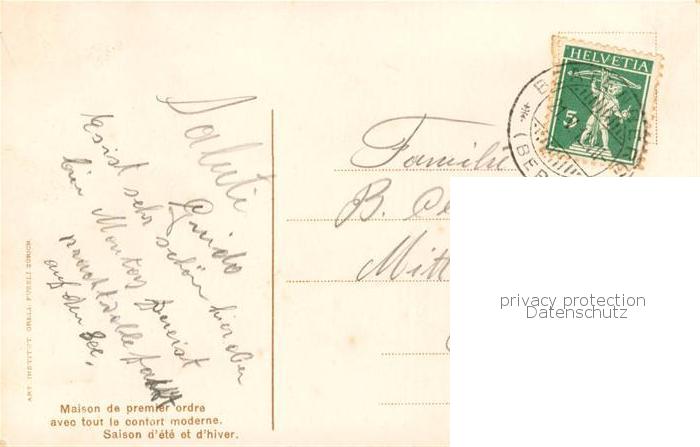 HELVETIA
5
(BER
Saluti
Guido
Es ist sehr schön hier oben
bin Montag
prachtvolle
auf den See.
Familie
B.
Mitt
privacy protection
Datenschutz
ART. INSTITUT ORELL FÜSSLI ZÜRICH
Maison de premier ordre
avec tout le confort moderne.
Saison d'été et d'hiver.